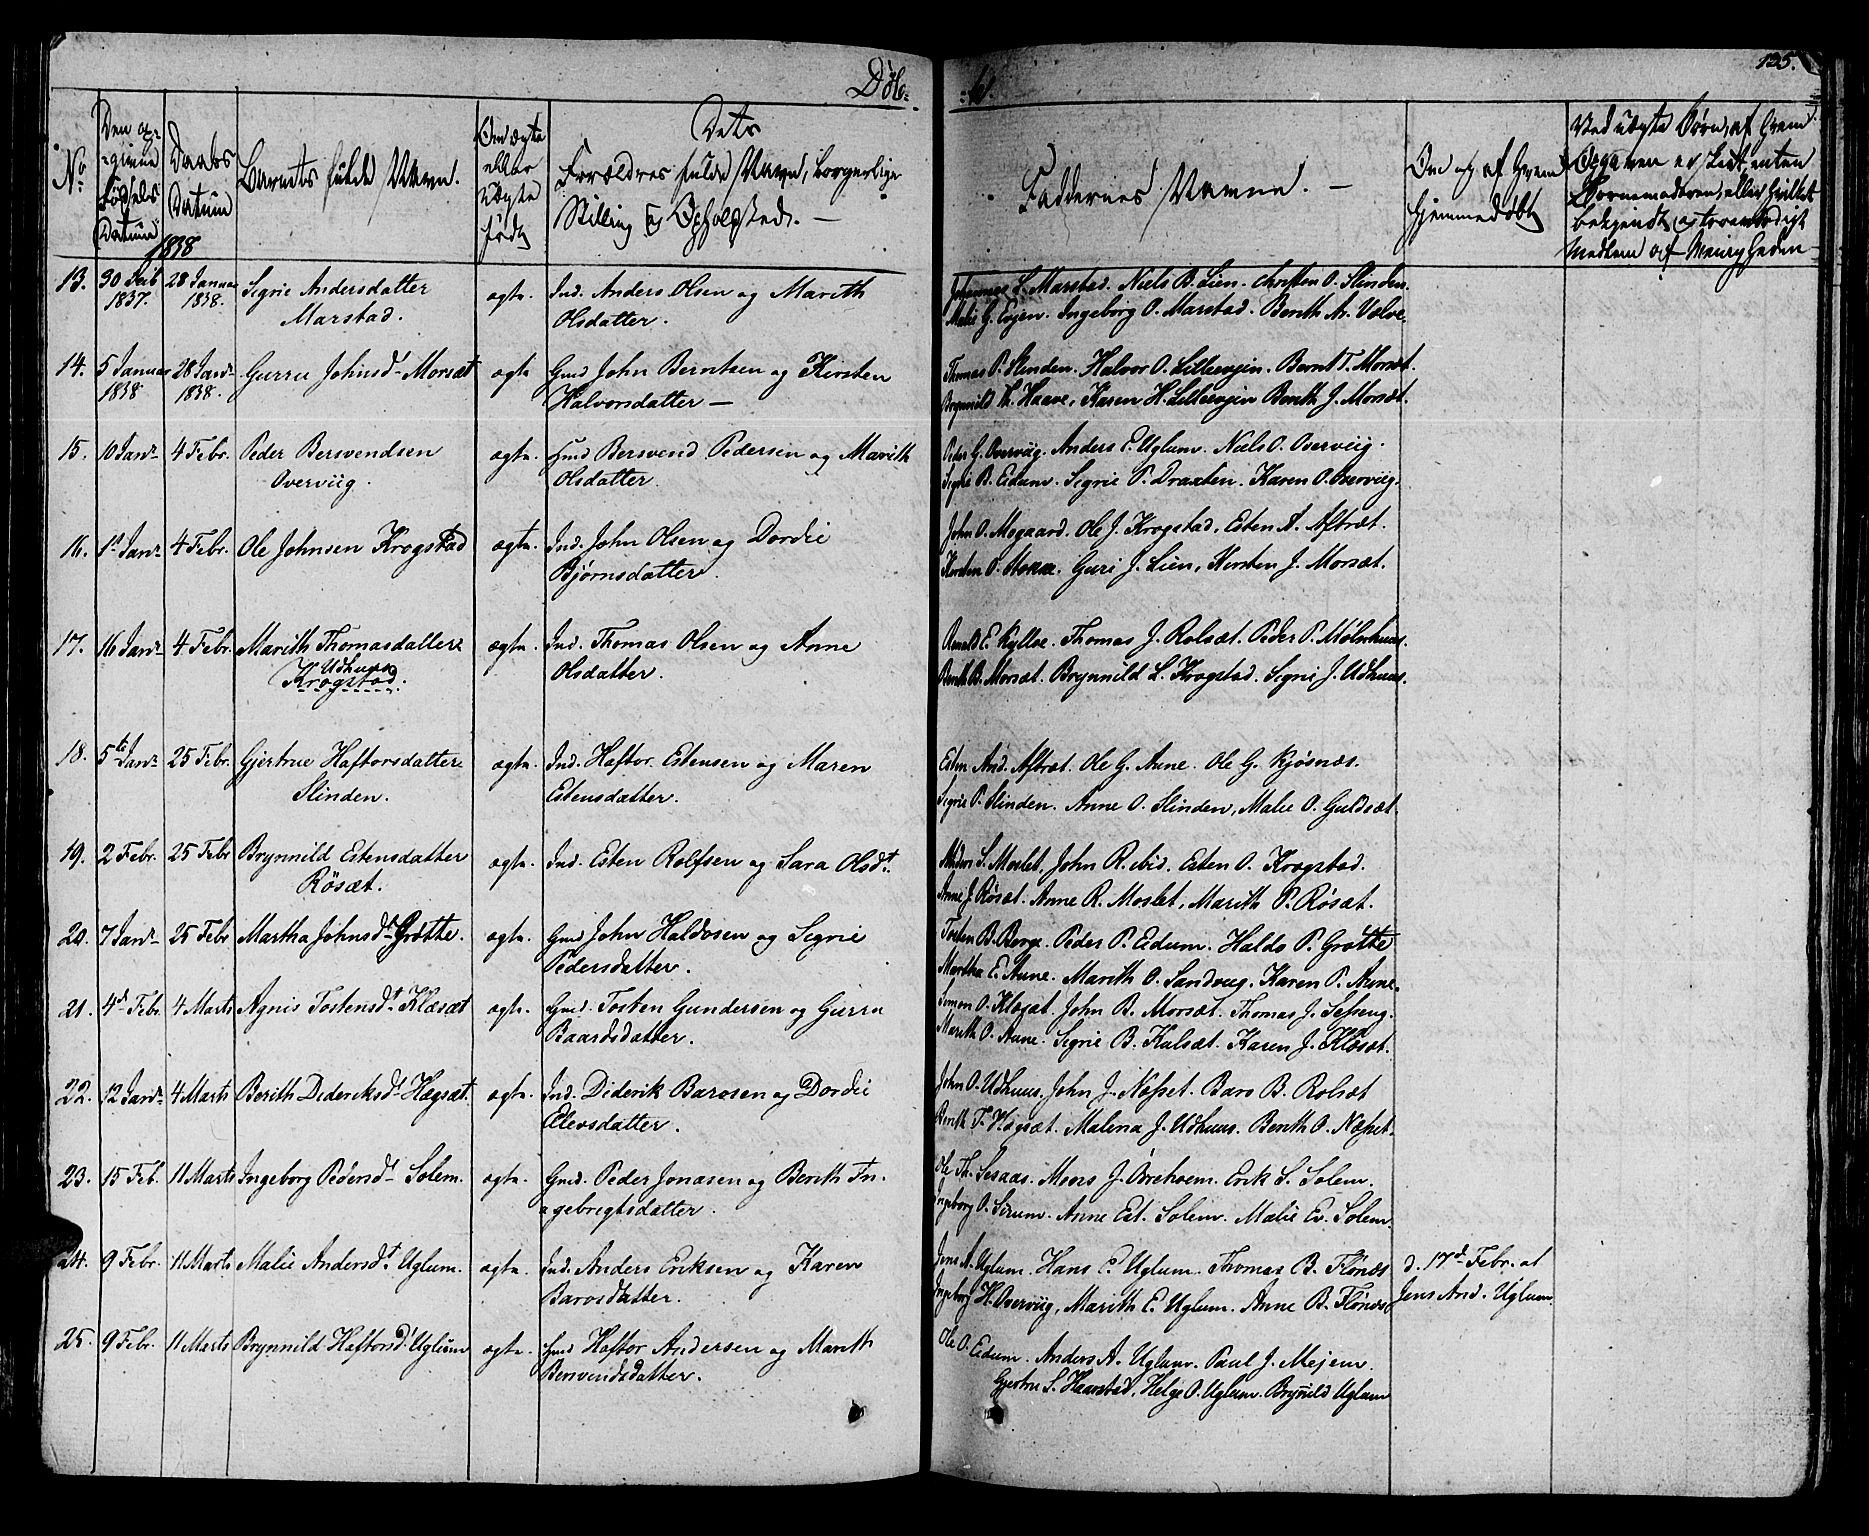 Døb- -te. 125.
No
Den op-
-givne
Fødsels
Datum
Daabs
Datum
Barnets fulde Navn.
Om ægte
eller
uægte
født
Dets
Forældres fulde Navn, borgerlige
Stilling og Opholdssted. —
Faddernes Navne. —
Om og af Hvem
hjemmedøbt
Ved uægte Børn, af Hvem
1838
13. 30 1837. 28 Januar 1838. Sigrie Andersdatter Marstad. ægte. Ind. Anders Olsen og Marith Olsdatter. L. Marstad. Niels B. Lien. Christen O. Slinden.
Malie G. Evjen. Ingeborg O. Marstad. Berith Ar. Vælve.
14. 5 Januar 1838 28 Janr 1838. Gurru Johnsd. Morsæt ægte Gmd John Berntsen og Kirsten Halvorsdatter — Thomas P. Slinden. Halvor O. Lillevjen. Bernt T. Morsæt.
Brynnild Haave, Karen H. Lillevjen Berith J. Morsæt.
15. 10 Janr 4 Febr. Peder Bersvendsen Overviig. ægte. Gmd Bersvend Pedersen og Marith Olsdatter. Peder G. Overviig. Anders E. Uglum. Niels O. Overviig.
Sigrie B. Eidum. Sigrie P. Draxten. Karen O. Overviig.
16. 1st Janr 4 Febr. Ole Johnsen Krogstad ægte. Ind. John Olsen og Dordie Bjørnsdatter. John O. Mogaard. Ole J. Krogstad, Esten A. Aftræt.
Kersten O. Guri J. Lien, Kersten J. Morsæt.
17. 16 Janr 4 Febr. Marith Thomasdattere Udhuus Krogstad. ægte. Ind. Thomas Olsen og Anne Olsdatter. Arnold E. Kylloe. Thomas J. Rolsæt. Peder P. Mølnhuus.
Berith B. Morsæt. Brynnild L. Krogstad. Sigrie J. Udhuus.
18. 5te Janr 25 Febr. Gjertrue Haftorsdattere Slinden. ægte. Ind. Haftor Estensen og Maren Estensdatter. Esten And. Aftræt. Ole G. Aune. Ole G. Kjøsnæs.
Sigrie P. Slinden. Anne O. Slinden, Malie O. Guldsæt.
19. 2 Febr. 25 Febr Brynnild Estensdatter Røsæt. ægte. Ind. Esten Rolfsen og Sara Olsdt. Anders S. Moslet. John R. ibid. Esten O. Krogstad.
Anne J. Røsæt. Anne R. Moslet, Marith P. Røsæt.
20. 7 Janr 25 Febr Martha Johnsdt Grøtte. ægte. Gmd John Haldosen og Sigrie Pedersdatter. Tosten B. Berge. Peder P. Eidum. Haldo P. Grøtte
Martha E. Aune. Marith O. Sandvug. Karen P. Aune.
21. 4d Febr. 4 Marts Agnis Tostensdt Klæsæt ægte. Gmd. Tosten Gundersen og Gurru Baardsdatter. Simon O. Klæsæt. John B. Morsæt. Thomas J. Sesseng.
Marith O. Aune. Sigrie B. Kulsæt. Karen J. Klæsæt.
22. 12 Janr 4 Marts Berith Dideriksdt Hægsæt. ægte. Ind. Diderik Barosen og Dordie Elevsdatter. John O. Udhuus. John J. Næsset. Baro B. Rolsæt
Berith T. Hægsæt. Malena J. Udhuus. Berith O. Næsset.
23. 15 Feb. 11 Marts Ingeborg Pedersdt Solem. ægte. Gmd. Peder Jonasen og Berith In-
-gebrigtsdatter. Ole Th. Sesaas. Mons J. Ørehvem. Erik S. Solem.
Ingeborg O. Sirum. Anne Est. Solem. Malie Ev. Solem.
24. 9 Febr. 11 Marts Malie Andersdt Uglum. ægte. Ind. Anders Eriksen og Karen Barosdatter. Jens A. Uglum. Hans E. Uglum. Thomas B. Flønæs d. 17d Febr. at
Ingeborg H. Overviig, Marith E. Uglum. Anne B. Flønæs. Jens And. Uglum.
25. 9 Febr. 11 Marts Brynnild Haftorsdt Uglum ægte. Gmd Haftor Andersen og Marith Bersvendsdatter. Ole O. Eidum. Anders A. Uglum. Paul J. Mejem.
Gjertru S. Haarstad, Helge O. Uglum. Brynild Uglum